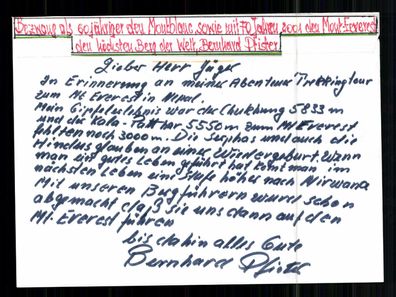 Bezwang als 60 jähriger den Montblanc, sowie mit 70 Jahren, 2001 den Mont-Everest
den höchsten Berg der Welt, Bernhard Pfister
Lieber Herr Jäger
In Erinnerung an meiner Abenteuer Trekkingtour
zum Mt. Everest in Nepal.
Mein Gipfelerlebnis war der Chukhung 5833 m
und der Kala-Patthar 5550 m zum Mt. Everest
fehlten noch 3000 m. Die Serphas und auch die
Hindus glauben an einer Wiedergeburt. Wann
man ein gutes Leben geführt hat komt man im
nächsten Leben eine Stufe höher nach Nirwana
Mit unseren Bergführern wurd schon
abgemacht daß sie uns dann auf den
Mt. Everest führen
bis dahin alles Gute
Bernhard Pfister